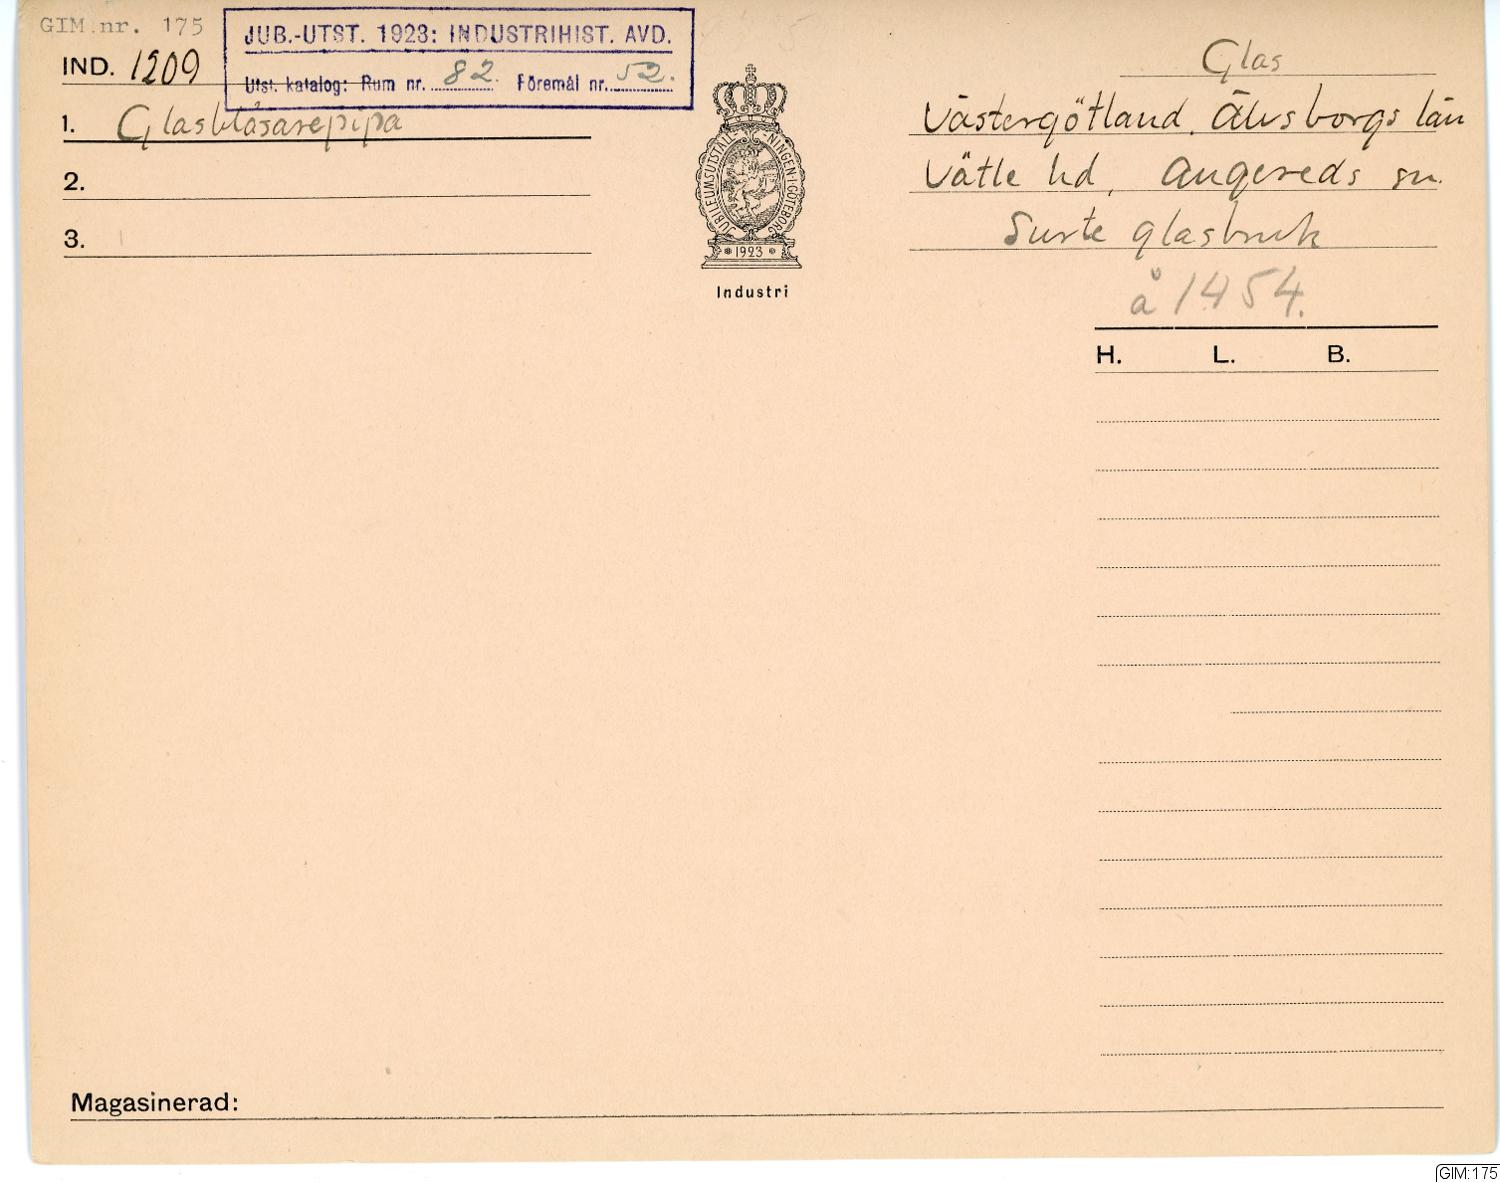 GIM.nr. 175
JUB.-UTST. 1923: INDUSTRIHIST. AVD.
Utst. katalog: Rum nr. 82. Föremål nr. 52.
IND. 1209
1. Glasblåsarepipa
2.
3.
JUBILEUMSUTSTÄLLNINGEN I GÖTEBORG
* 1923 *
Industri
Glas
Västergötland. Älvsborgs län
Vätle hd, Angereds sn.
Surte glasbruk
å 1454.
H. L. B.
Magasinerad:
GIM:175